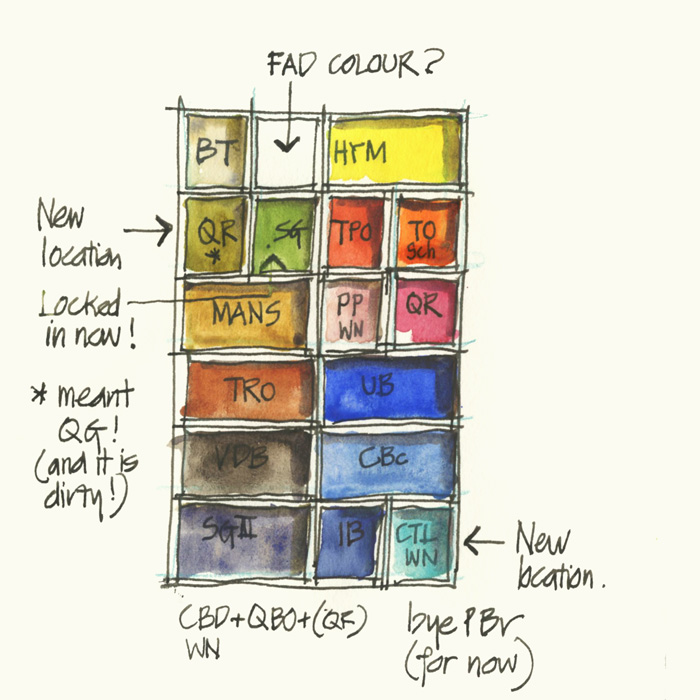 FAD COLOUR?
BT
HYM
New
location
QR
*
SG
TPO
TO
Sch
Locked
in now!
MANS
PP
WN
QR
* meant
QG!
(and it is
dirty!)
TRO
UB
VDB
CBC
SGII
IB
CTL
WN
New
location.
CBD+QBO+(QR)
WN
bye PBr
(for now)